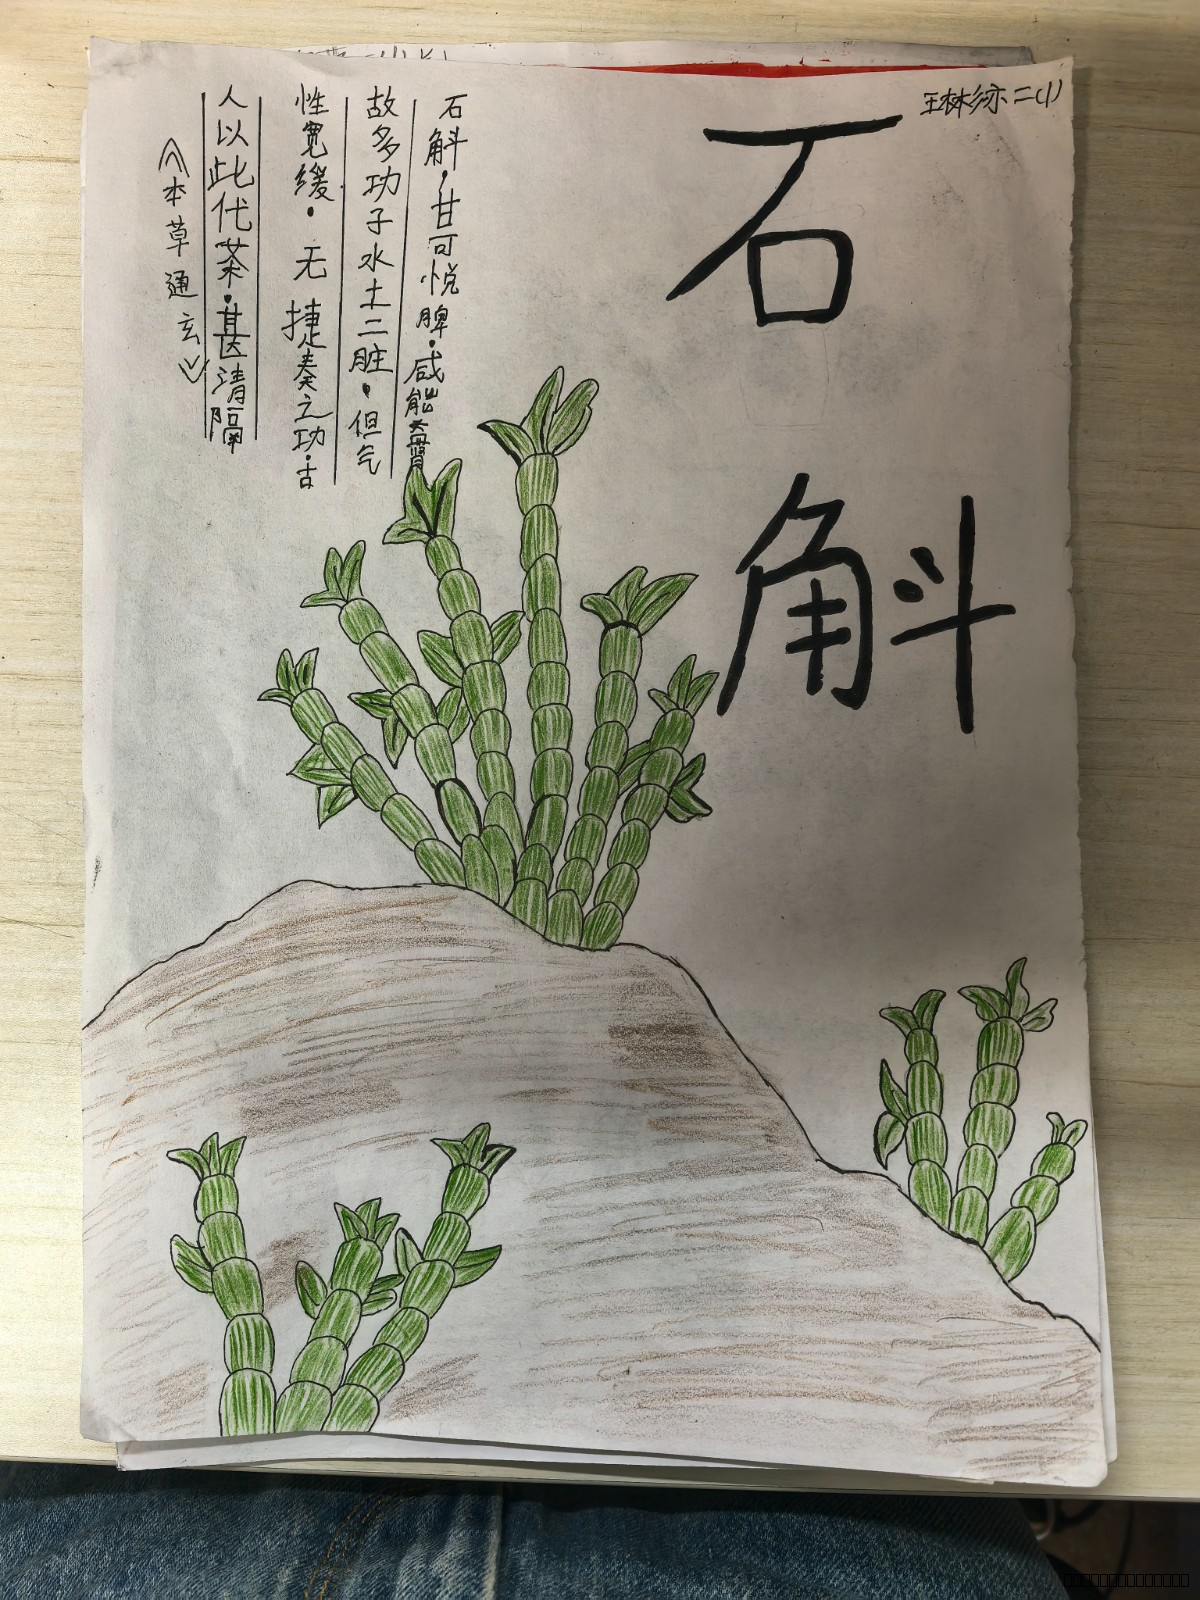 二(1)
石斛
石斛.甘可悦脾.咸能益肾
故多功子水土二脏.但气
性宽缓.无捷奏之功.古
人以此代茶.甚清隔
《本草通玄》